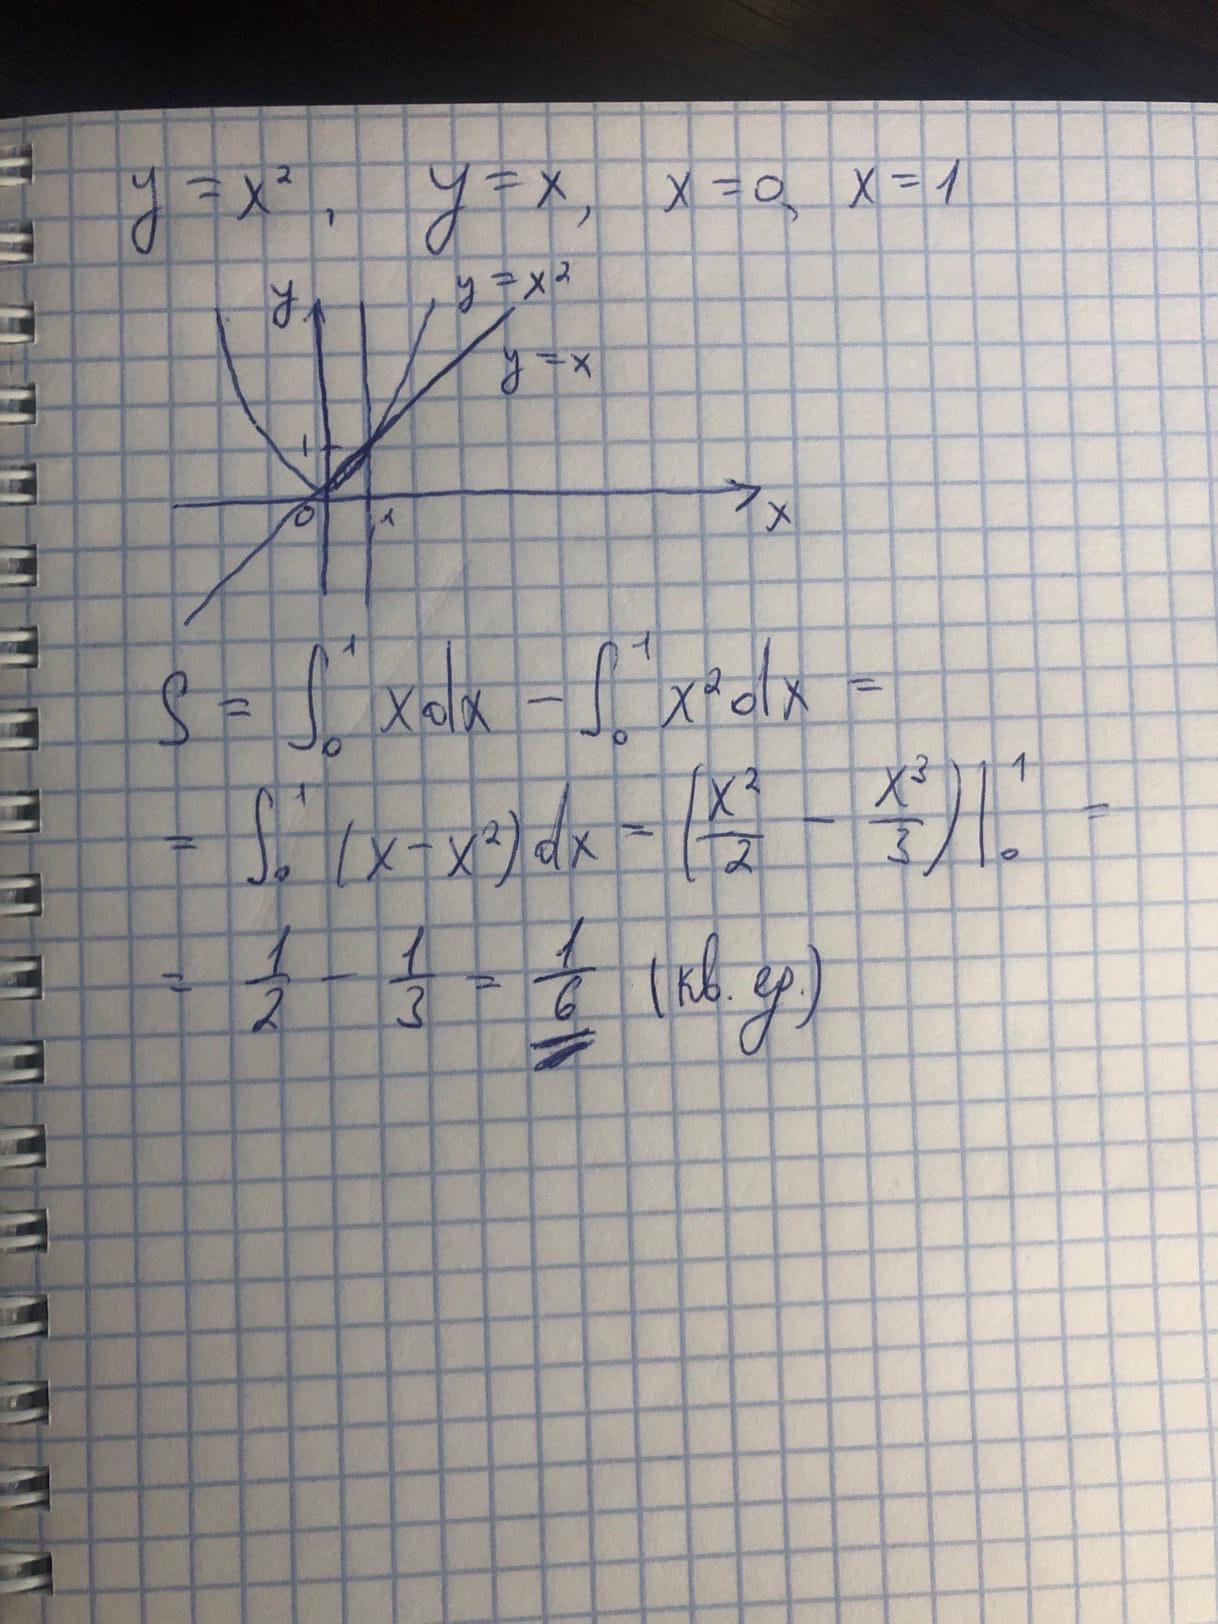 y = x², y = x, x = 0, x = 1
y y = x²
y = x
1
0 1 x
S = ∫₀¹ x dx − ∫₀¹ x² dx =
= ∫₀¹ (x − x²) dx = (x²/2 − x³/3) |₀¹ =
= 1/2 − 1/3 = 1/6 (кв. ер.)